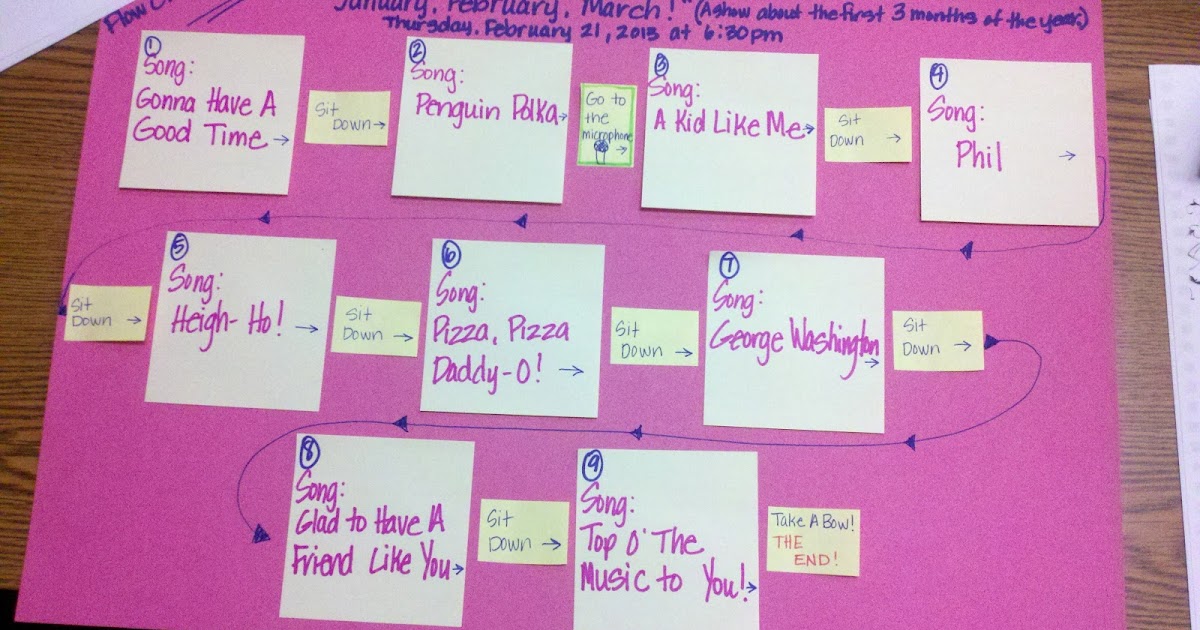 Flow
January, February, March!" (A show about the first 3 months of the year.)
Thursday, February 21, 2013 at 6:30pm
1
Song:
Gonna Have A
Good Time →
Sit
Down →
2
Song:
Penguin Polka →
Go to
the
microphone
→
3
Song:
A Kid Like Me →
Sit
Down →
4
Song:
Phil →
Sit
Down →
5
Song:
Heigh-Ho! →
Sit
Down →
6
Song:
Pizza, Pizza
Daddy-O! →
Sit
Down →
7
Song:
George Washington
→
Sit
Down →
8
Song:
Glad to Have A
Friend Like You →
Sit
Down →
9
Song:
Top O' The
Music to You! →
Take A Bow!
THE
END!